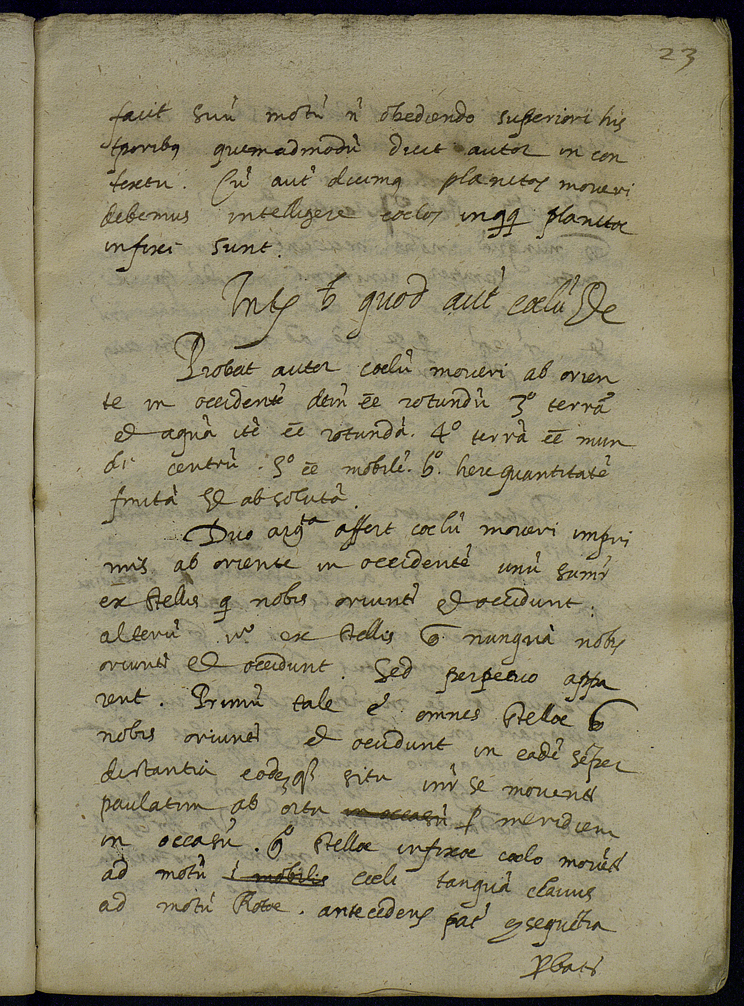 23
facit suū motū n̄ obediendo superiori his
tp̄oribꝰ quemadmodū dicit autor in con
textu. Cū aut̄ dicimꝰ planetas moveri
debemus intelligere coelos in planetae
infixi sunt.
quod aut̄ coelū
Probat autor coelū moveri ab orien
te in occidentē ēē rotundū 3º terrā
et aquā itē ēē rotundā. 4º terrā ēē mun
di centrū. 5º ēē mobilē. 6º. quantitatē
et absolutā.
Duo argta affert coelū moveri impri
mis ab oriente in occidentē unū sumi
ex stellis q̄ nobis oriunt̄ et occidunt.
alterū vº ex stellis nunquā nobis
oriunt̄ et occidunt. Sed perpetuo appa
rent. Primū tale ē. omnes stellae
nobis oriunt̄ et occidunt in eadē sēper
distantia eodēq̄ situ int̄ se movent̄
paulatim ab ortu in occasū p̄ meridiem
in occasū. stellae infixae coelo movēt̄
ad motū mobilis coeli tanquā clavus
ad motū Rotae. antecedens pat̄
p̄bat̄